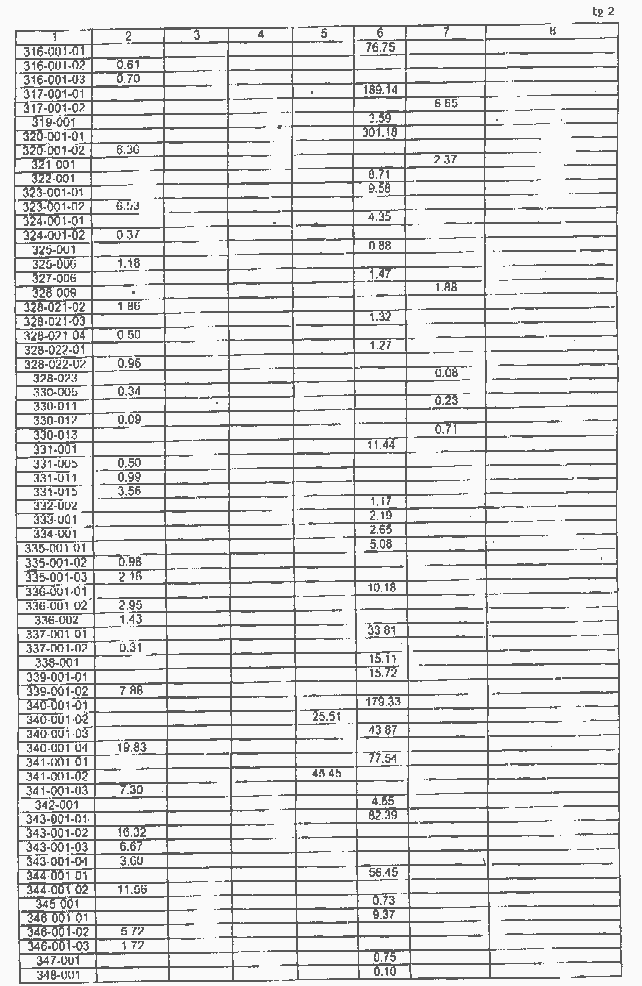 tp 2
1 2 3 4 5 6 7 8
316-001-01 76.75
316-001-02 0.61
316-001-03 0.70
317-001-01 189.14
317-001-02 6.65
319-001 3.59
320-001-01 301.18
320-001-02 6.30
321 001 2.37
322-001 8.71
323-001-01 9.58
323-001-02 6.53
324-001-01 4.35
324-001-02 0.37
325-001 0.88
325-006 1.18
327-006 1.47
328 009 1.88
328-021-02 1.86
328-021-03 1.32
328-021 04 0.50
328-022-01 1.27
328-022-02 0.96
328-023 0.08
330-005 0.34
330-011 0.23
330-012 0.09
330-013 0.71
331-001 11.44
331-005 0.50
331-011 0.99
331-015 3.56
332-002 1.17
333-001 2.19
334-001 2.65
335-001 01 5.08
335-001-02 0.98
335-001-03 2.16
336-001-01 10.18
336-001 02 2.95
336-002 1.43
337-001 01 33 81
337-001-02 0.31
338-001 15.11
339-001-01 15.72
339-001-02 7.88
340-001-01 179.33
340-001-02 25.51
340-001-03 43 87
340-001 04 19.83
341-001 01 77.54
341-001-02 45 45
341-001-03 7.30
342-001 4.55
343-001-01 82.39
343-001-02 16.32
343-001-03 6.67
343-001-04 3.60
344-001 01 56.45
344-001 02 11.56
345 001 0.73
346 001 01 9.37
346-001-02 5 72
346-001-03 1 72
347-001 0.75
348-001 0.10